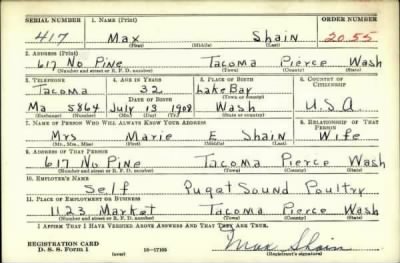 SERIAL NUMBER 1. NAME (Print) ORDER NUMBER
417 Max Shain 2055
(First) (Middle) (Last)
2. ADDRESS (Print)
617 No Pine Tacoma Pierce Wash
(Number and street or R. F. D. number) (Town) (County) (State)
3. TELEPHONE 4. AGE IN YEARS 5. PLACE OF BIRTH 6. COUNTRY OF CITIZENSHIP
Tacoma 32 Lake Bay
DATE OF BIRTH (Town or county)
Ma 5864 July 13 1908 Wash U.S.A
(Exchange) (Number) (Mo.) (Day) (Yr.) (State or country)
7. NAME OF PERSON WHO WILL ALWAYS KNOW YOUR ADDRESS 8. RELATIONSHIP OF THAT PERSON
Mrs Marie E Shain Wife
(Mr., Mrs., Miss) (First) (Middle) (Last)
9. ADDRESS OF THAT PERSON
617 No Pine Tacoma Pierce Wash
(Number and street or R. F. D. number) (Town) (County) (State)
10. EMPLOYER'S NAME
Self Puget Sound Poultry
11. PLACE OF EMPLOYMENT OR BUSINESS
1123 Market Tacoma Pierce Wash
(Number and street or R. F. D. number) (Town) (County) (State)
I AFFIRM THAT I HAVE VERIFIED ABOVE ANSWERS AND THAT THEY ARE TRUE.
REGISTRATION CARD
D. S. S. Form 1 16—17105 Max Shain
(over) (Registrant's signature)